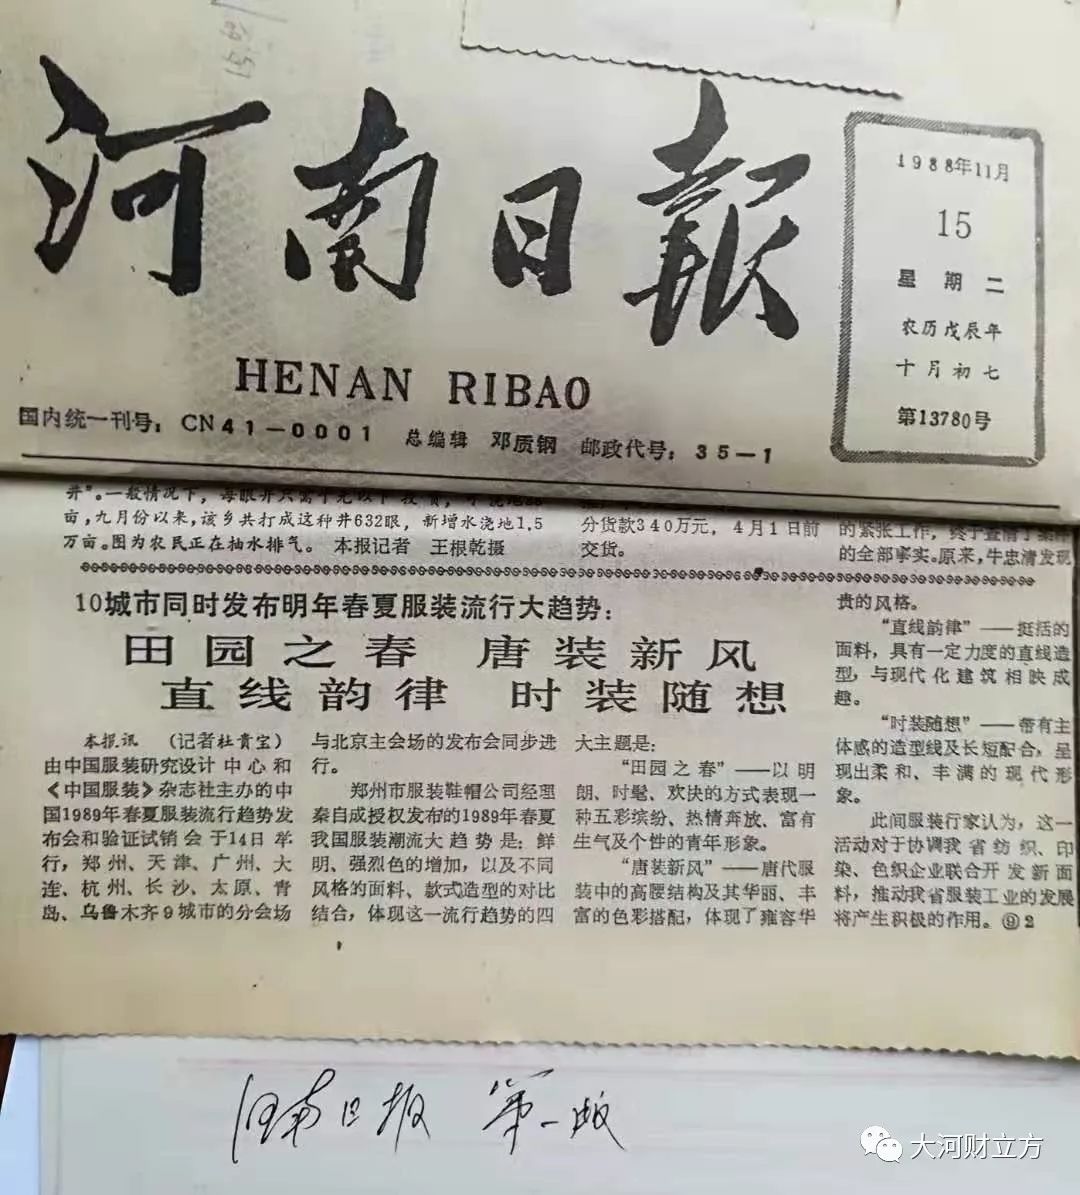 河南日报
HENAN RIBAO
国内统一刊号：CN41—0001 总编辑 邓质钢 邮政代号：35—1
1988年11月
15
星期二
农历戊辰年
十月初七
第13780号
亩，九月份以来，该乡共打成这种井632眼，新增水浇地1.5
万亩。图为农民正在抽水排气。 本报记者 王根乾摄
分货款340万元，4月1日前
交货。
的全部事实。原来，牛忠清发现
10城市同时发布明年春夏服装流行大趋势：
田园之春 唐装新风
直线韵律 时装随想
本报讯 （记者杜贵宝）
由中国服装研究设计中心和
《中国服装》杂志社主办的中
国1989年春夏服装流行趋势发
布会和验证试销会于14日举
行，郑州、天津、广州、大
连、杭州、长沙、太原、青
岛、乌鲁木齐9城市的分会场
与北京主会场的发布会同步进
行。
郑州市服装鞋帽公司经理
秦自成授权发布的1989年春夏
我国服装潮流大趋势是：鲜
明、强烈色的增加，以及不同
风格的面料、款式造型的对比
结合，体现这一流行趋势的四
大主题是：
“田园之春”——以明
朗、时髦、欢快的方式表现一
种五彩缤纷、热情奔放、富有
生气及个性的青年形象。
“唐装新风”——唐代服
装中的高腰结构及其华丽、丰
富的色彩搭配，体现了雍容华
贵的风格。
“直线韵律”——挺活的
面料，具有一定力度的直线造
型，与现代化建筑相映成
趣。
“时装随想”——带有主
体感的造型线及长短配合，呈
现出柔和、丰满的现代形
象。
此间服装行家认为，这一
活动对于协调我省纺织、印
染、色织企业联合开发新面
料，推动我省服装工业的发展
将产生积极的作用。⑨2
河南日报 第一版
大河财立方